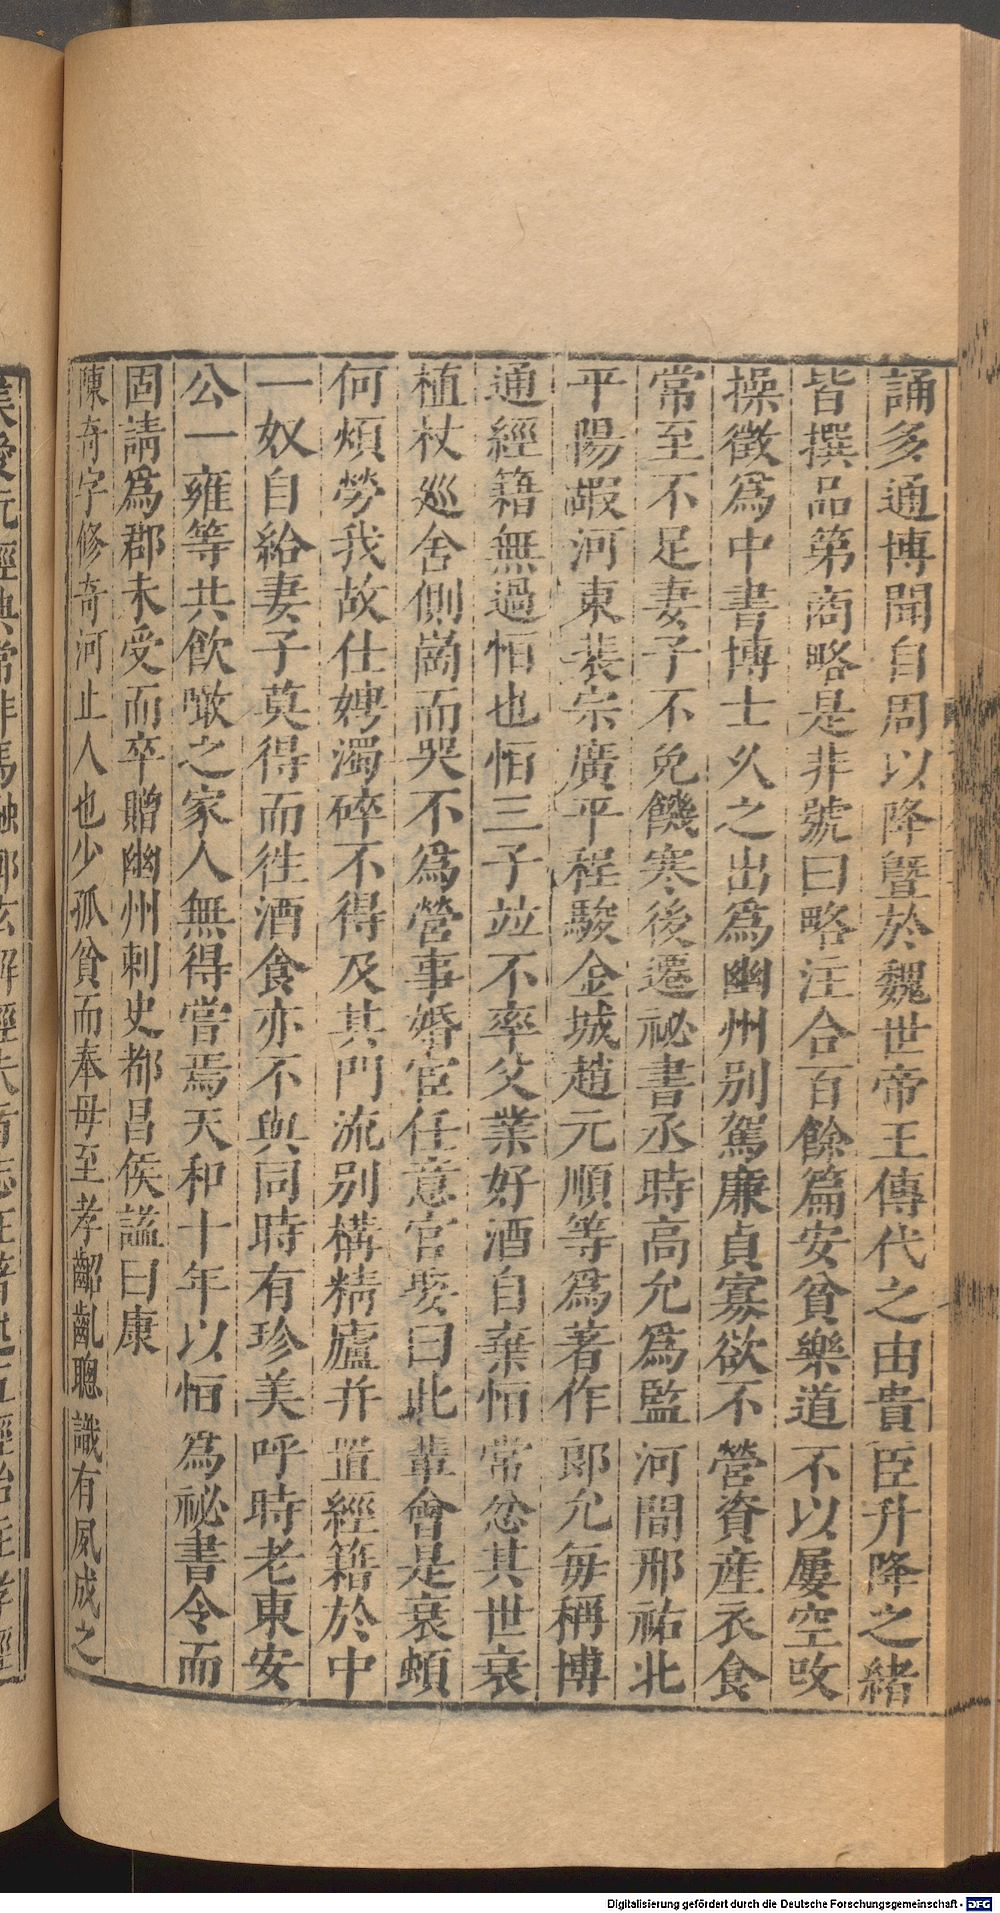 誦多通博聞自周以降暨於魏世帝王傳代之由貴臣升降之緒
皆撰品第商略是非號曰略注合百餘篇安貧樂道不以屢空改
操徵爲中書博士久之出爲幽州別駕廉貞寡欲不營資産衣食
常至不足妻子不免饑寒後遷祕書丞時高允爲監河間邢祐北
平陽嘏河東裴宗廣平程駿金城趙元順等爲著作郎允每稱博
通經籍無過恒也恒三子竝不率父業好酒自棄恒常忿其世衰
植杖巡舍側崗而哭不爲營事婚宦任意官娶曰此輩會是衰頓
何煩勞我故仕娉濁碎不得及其門流別構精廬并置經籍於中
一奴自給妻子莫得而徃酒食亦不與同時有珍美呼時老東安
公一雍等共飲噉之家人無得嘗焉天和十年以恒爲祕書令而
固請爲郡未受而卒贈幽州刺史都昌侯諡曰康
陳奇字修奇河止人也少孤貧而奉母至孝齠齓聰識有夙成之
Digitalisierung gefördert durch die Deutsche Forschungsgemeinschaft - DFG